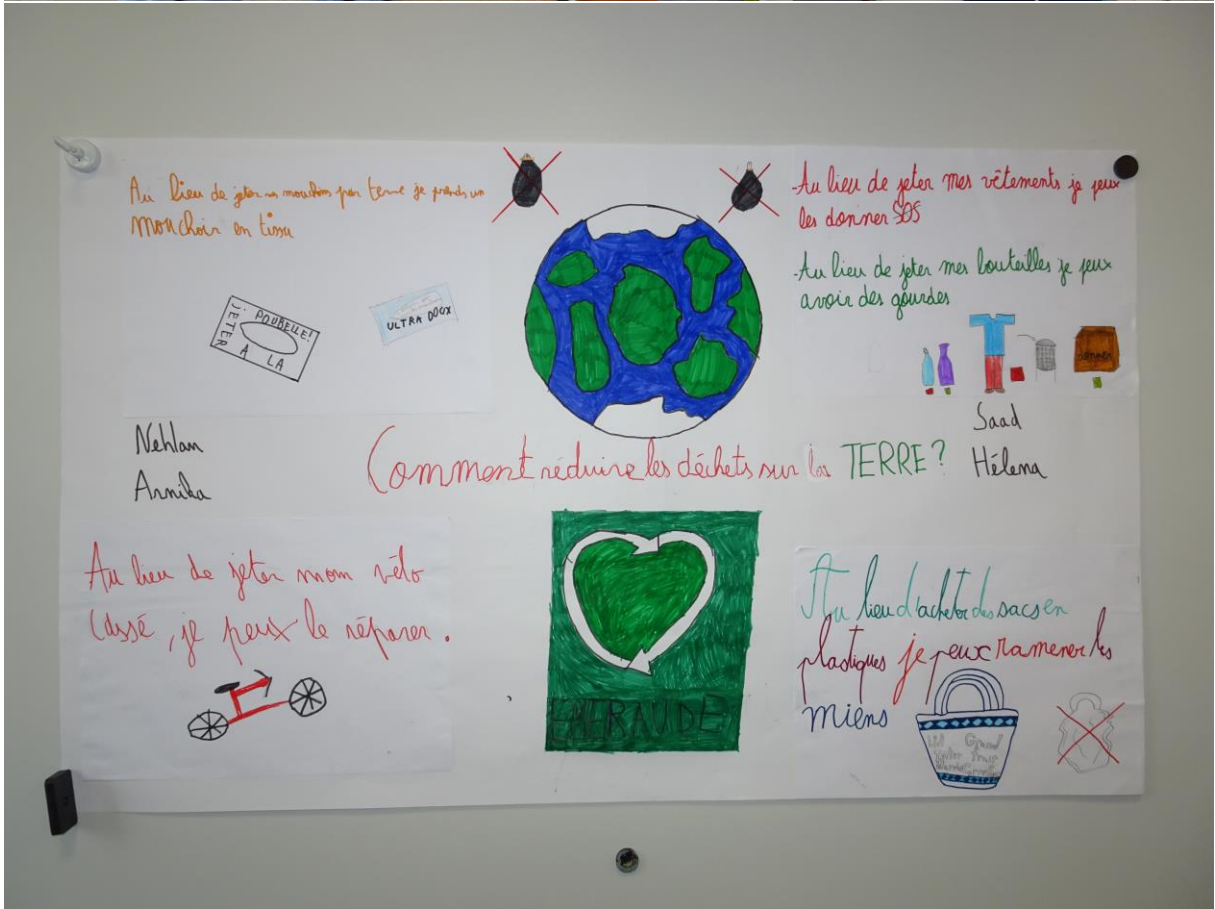 Au lieu de jeter mouchoirs par terre je prends un
mouchoir en tissu
POUBELLE!
JETER A LA
ULTRA DOUX
-Au lieu de jeter mes vêtements je peux
les donner SOS
-Au lieu de jeter mes bouteilles je peux
avoir des gourdes
donner
Nehlan
Arnika
Comment réduire les déchets sur la TERRE?
Saad
Héléna
Au lieu de jeter mom vélo
cassé, je peux le réparer.
EMERAUDE
Au lieu d'acheter des sacs en
plastiques je peux ramener les
miens
Lidl Grand
frais